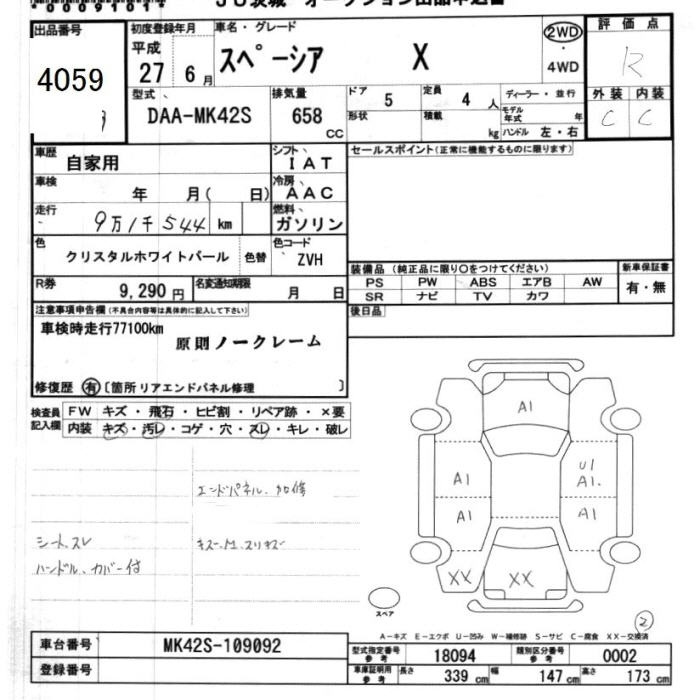 JU茨城 オークション出品申込書
出品番号 4059
初度登録年月 平成 27 6月
車名・グレード スペーシア X
2WD ・ 4WD
評価点 R
型式 DAA-MK42S
排気量 658 CC
ドア 5
定員 4 人
ディーラー・並行
形状
積載 kg
モデル年式 年
ハンドル 左・右
外装 内装
C C
車歴 自家用
シフト IAT
セールスポイント(正常に機能するものに限ります)
車検 年 月( 日)
冷房 AAC
走行 9万1千544 km
燃料 ガソリン
色 クリスタルホワイトパール 色替
色コード ZVH
装備品 (純正品に限り○をつけてください)
新車保証書
PS PW ABS エアB AW
有・無
SR ナビ TV カワ
R券 9,290円
名変通知期限 月 日
後日品
注意事項申告欄(不具合内容等は具体的に記入して下さい)
車検時走行77100km
原則ノークレーム
修復歴 有 〔箇所 リアエンドパネル修理 〕
検査員記入欄
FW キズ・飛石・ヒビ割・リペア跡・×要
内装 キズ・汚レ・コゲ・穴・スレ・キレ・破レ
エンドパネル、加修
シートスレ
ハンドル、カバー付
A1
A1
U1
A1.
A1
A1
XX
XX
スペア
2
A-キズ E-エクボ U-凹み W-補修跡 S-サビ C-腐食 XX-交換済
車台番号 MK42S-109092
登録番号
型式指定番号 参考 18094
類別区分番号 参考 0002
車庫証明用 参考 長さ 339 cm 幅 147 cm 高さ 173 cm